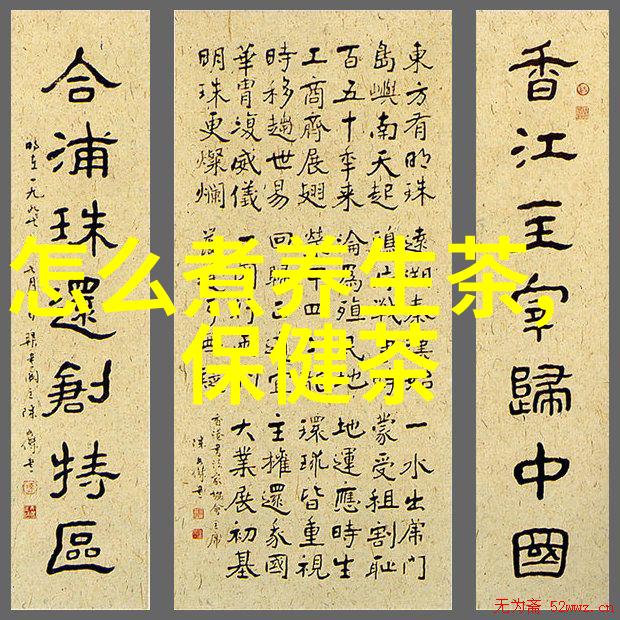 怎么煮养生茶,
保健茶
香江主宰歸中國
東方有明珠 一水出虎門
島嶼南天起 蒙受租割恥
百五十年來 淪為殖民地 地運應時生
工商齊展翅 環球皆重視
時移趨世易 回歸 主權還家國
華胄復威儀 大業展初基
明珠更燦爛
香港書法家協會主席
合浦珠還創特區
无为斋 52wwz.cn